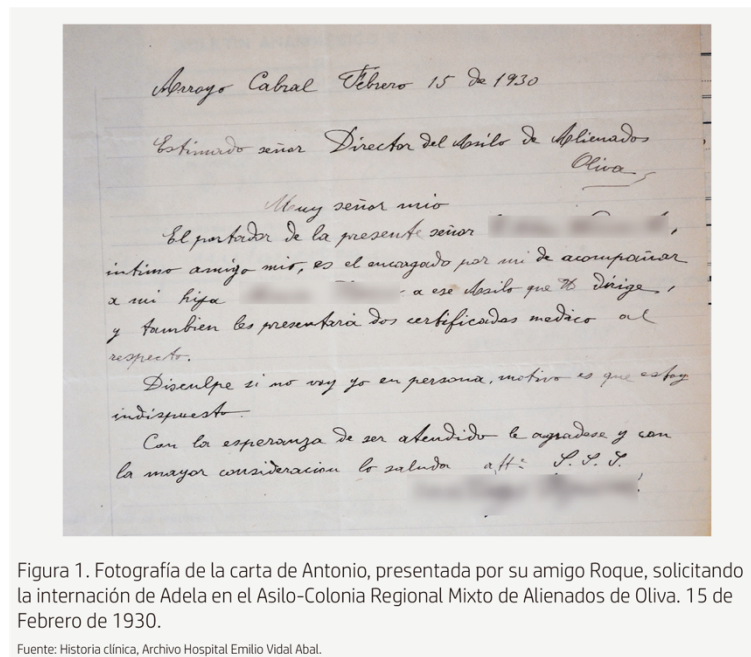 Arroyo Cabral Febrero 15 de 1930
Estimado señor Director del Asilo de Alienados
Oliva
Muy señor mio
El portador de la presente señor ,
intimo amigo mio, es el encagado por mi de acompañar
a mi hija a ese Asilo que Vd dirige,
y tambien les presentará dos certificados medico al
respecto.
Disculpe si no voy yo en persona, motivo es que estoy
indispuesto.
Con la esperanza de ser atendido le agradese y con
la mayor consideracion lo saluda att: S.S.S.
Figura 1. Fotografía de la carta de Antonio, presentada por su amigo Roque, solicitando
la internación de Adela en el Asilo-Colonia Regional Mixto de Alienados de Oliva. 15 de
Febrero de 1930.
Fuente: Historia clínica, Archivo Hospital Emilio Vidal Abal.